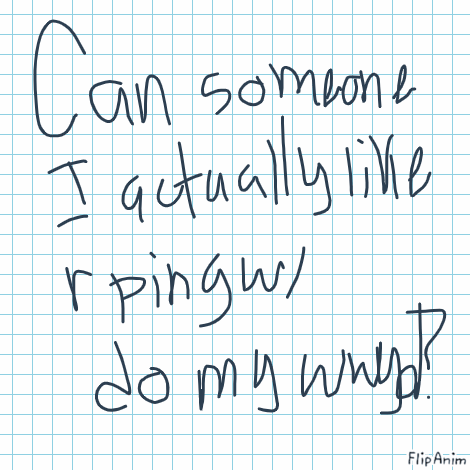 Can someone
I actually like
rping w/
do my wnyd?
FlipAnim